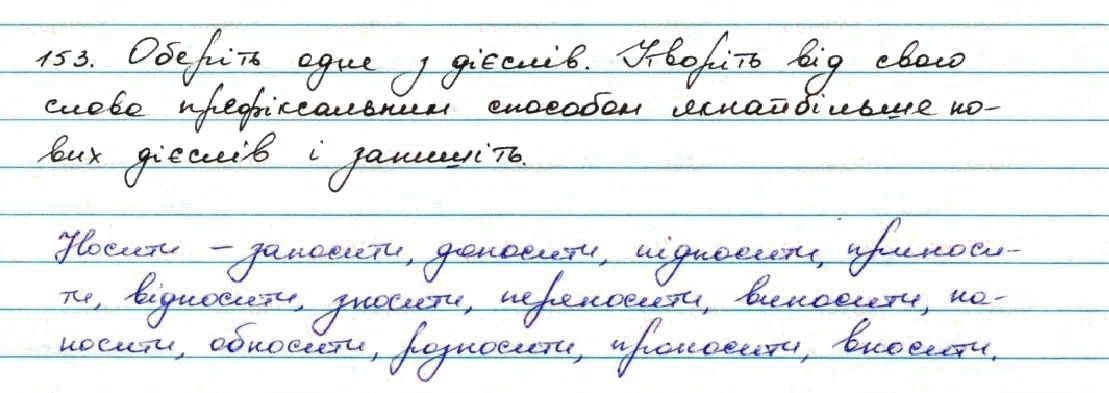 153. Оберіть одне з дієслів. Утворіть від свого
слова префіксальним способом якнайбільше но-
вих дієслів і запишіть.
Носити – заносити, доносити, підносити, приноси-
ти, відносити, зносити, переносити, виносити, на-
носити, обносити, розносити, проносити, вносити.